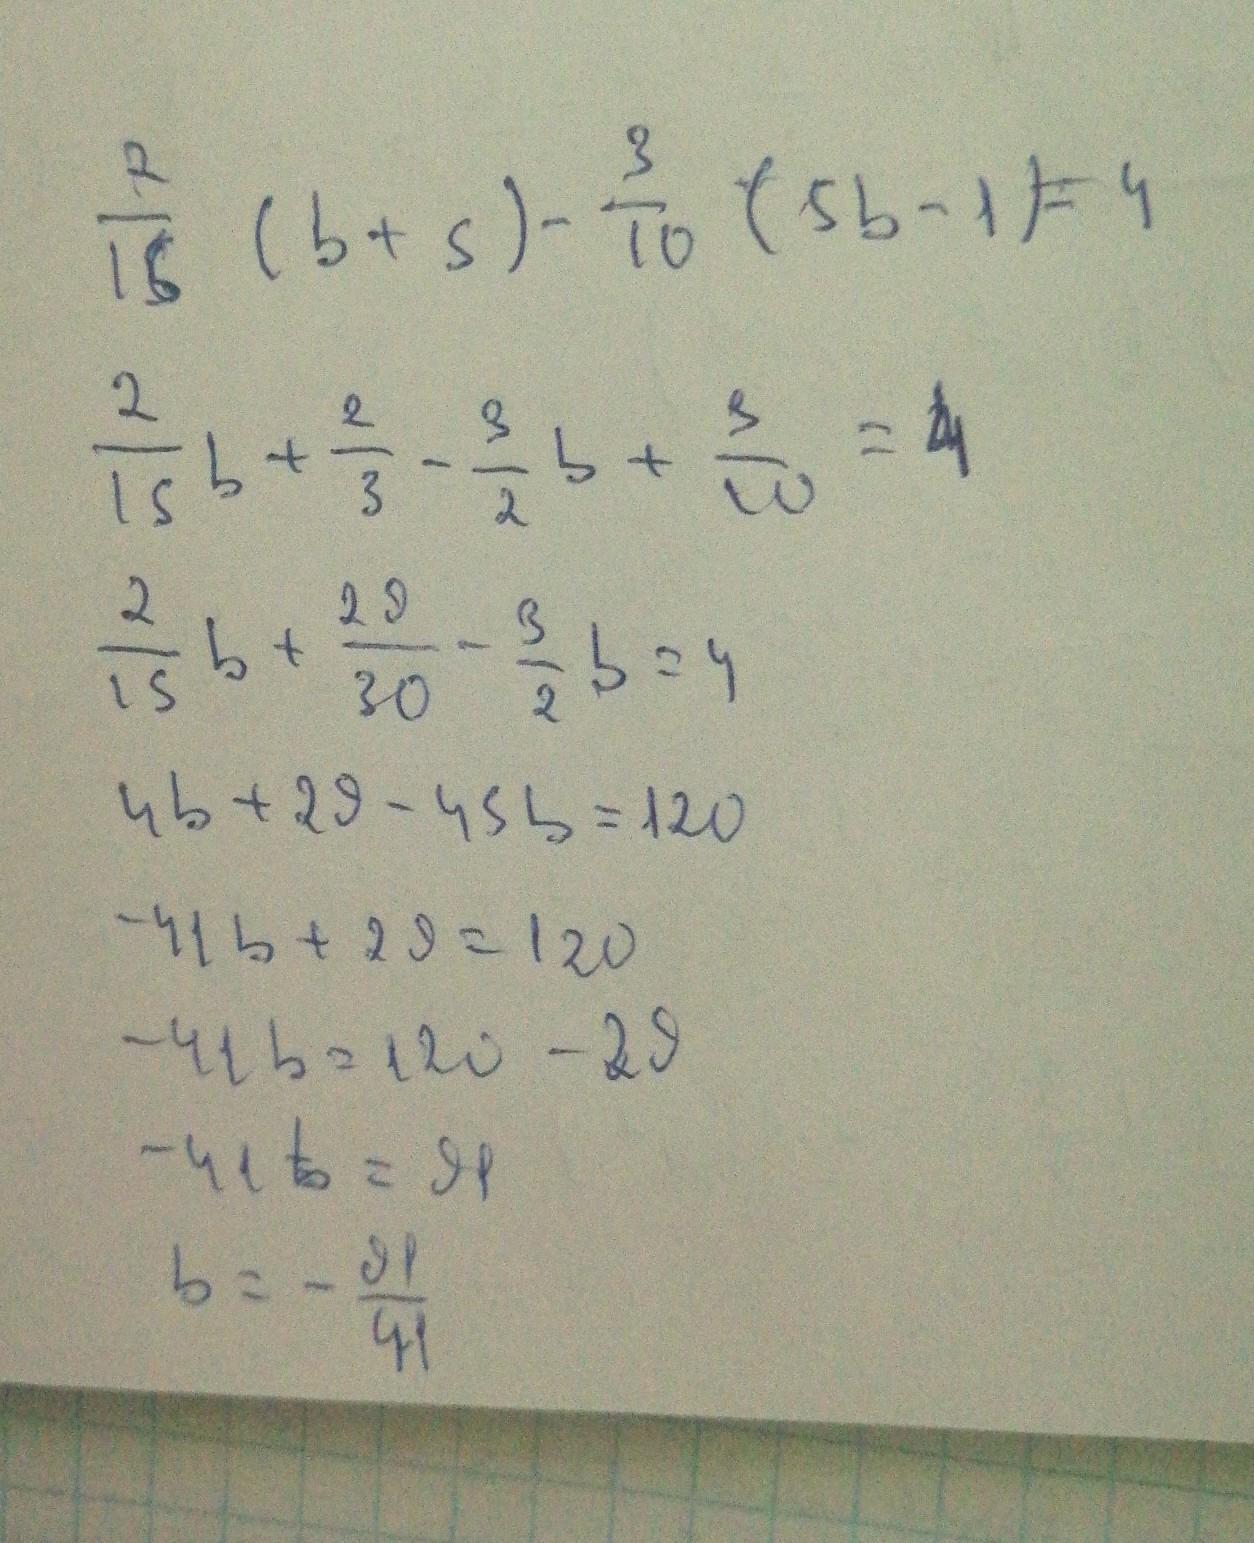 2/15 (b + 5) - 3/10 (5b - 1) = 4
2/15 b + 2/3 - 3/2 b + 3/10 = 4
2/15 b + 29/30 - 3/2 b = 4
4b + 29 - 45b = 120
-41b + 29 = 120
-41b = 120 - 29
-41b = 91
b = - 91/41